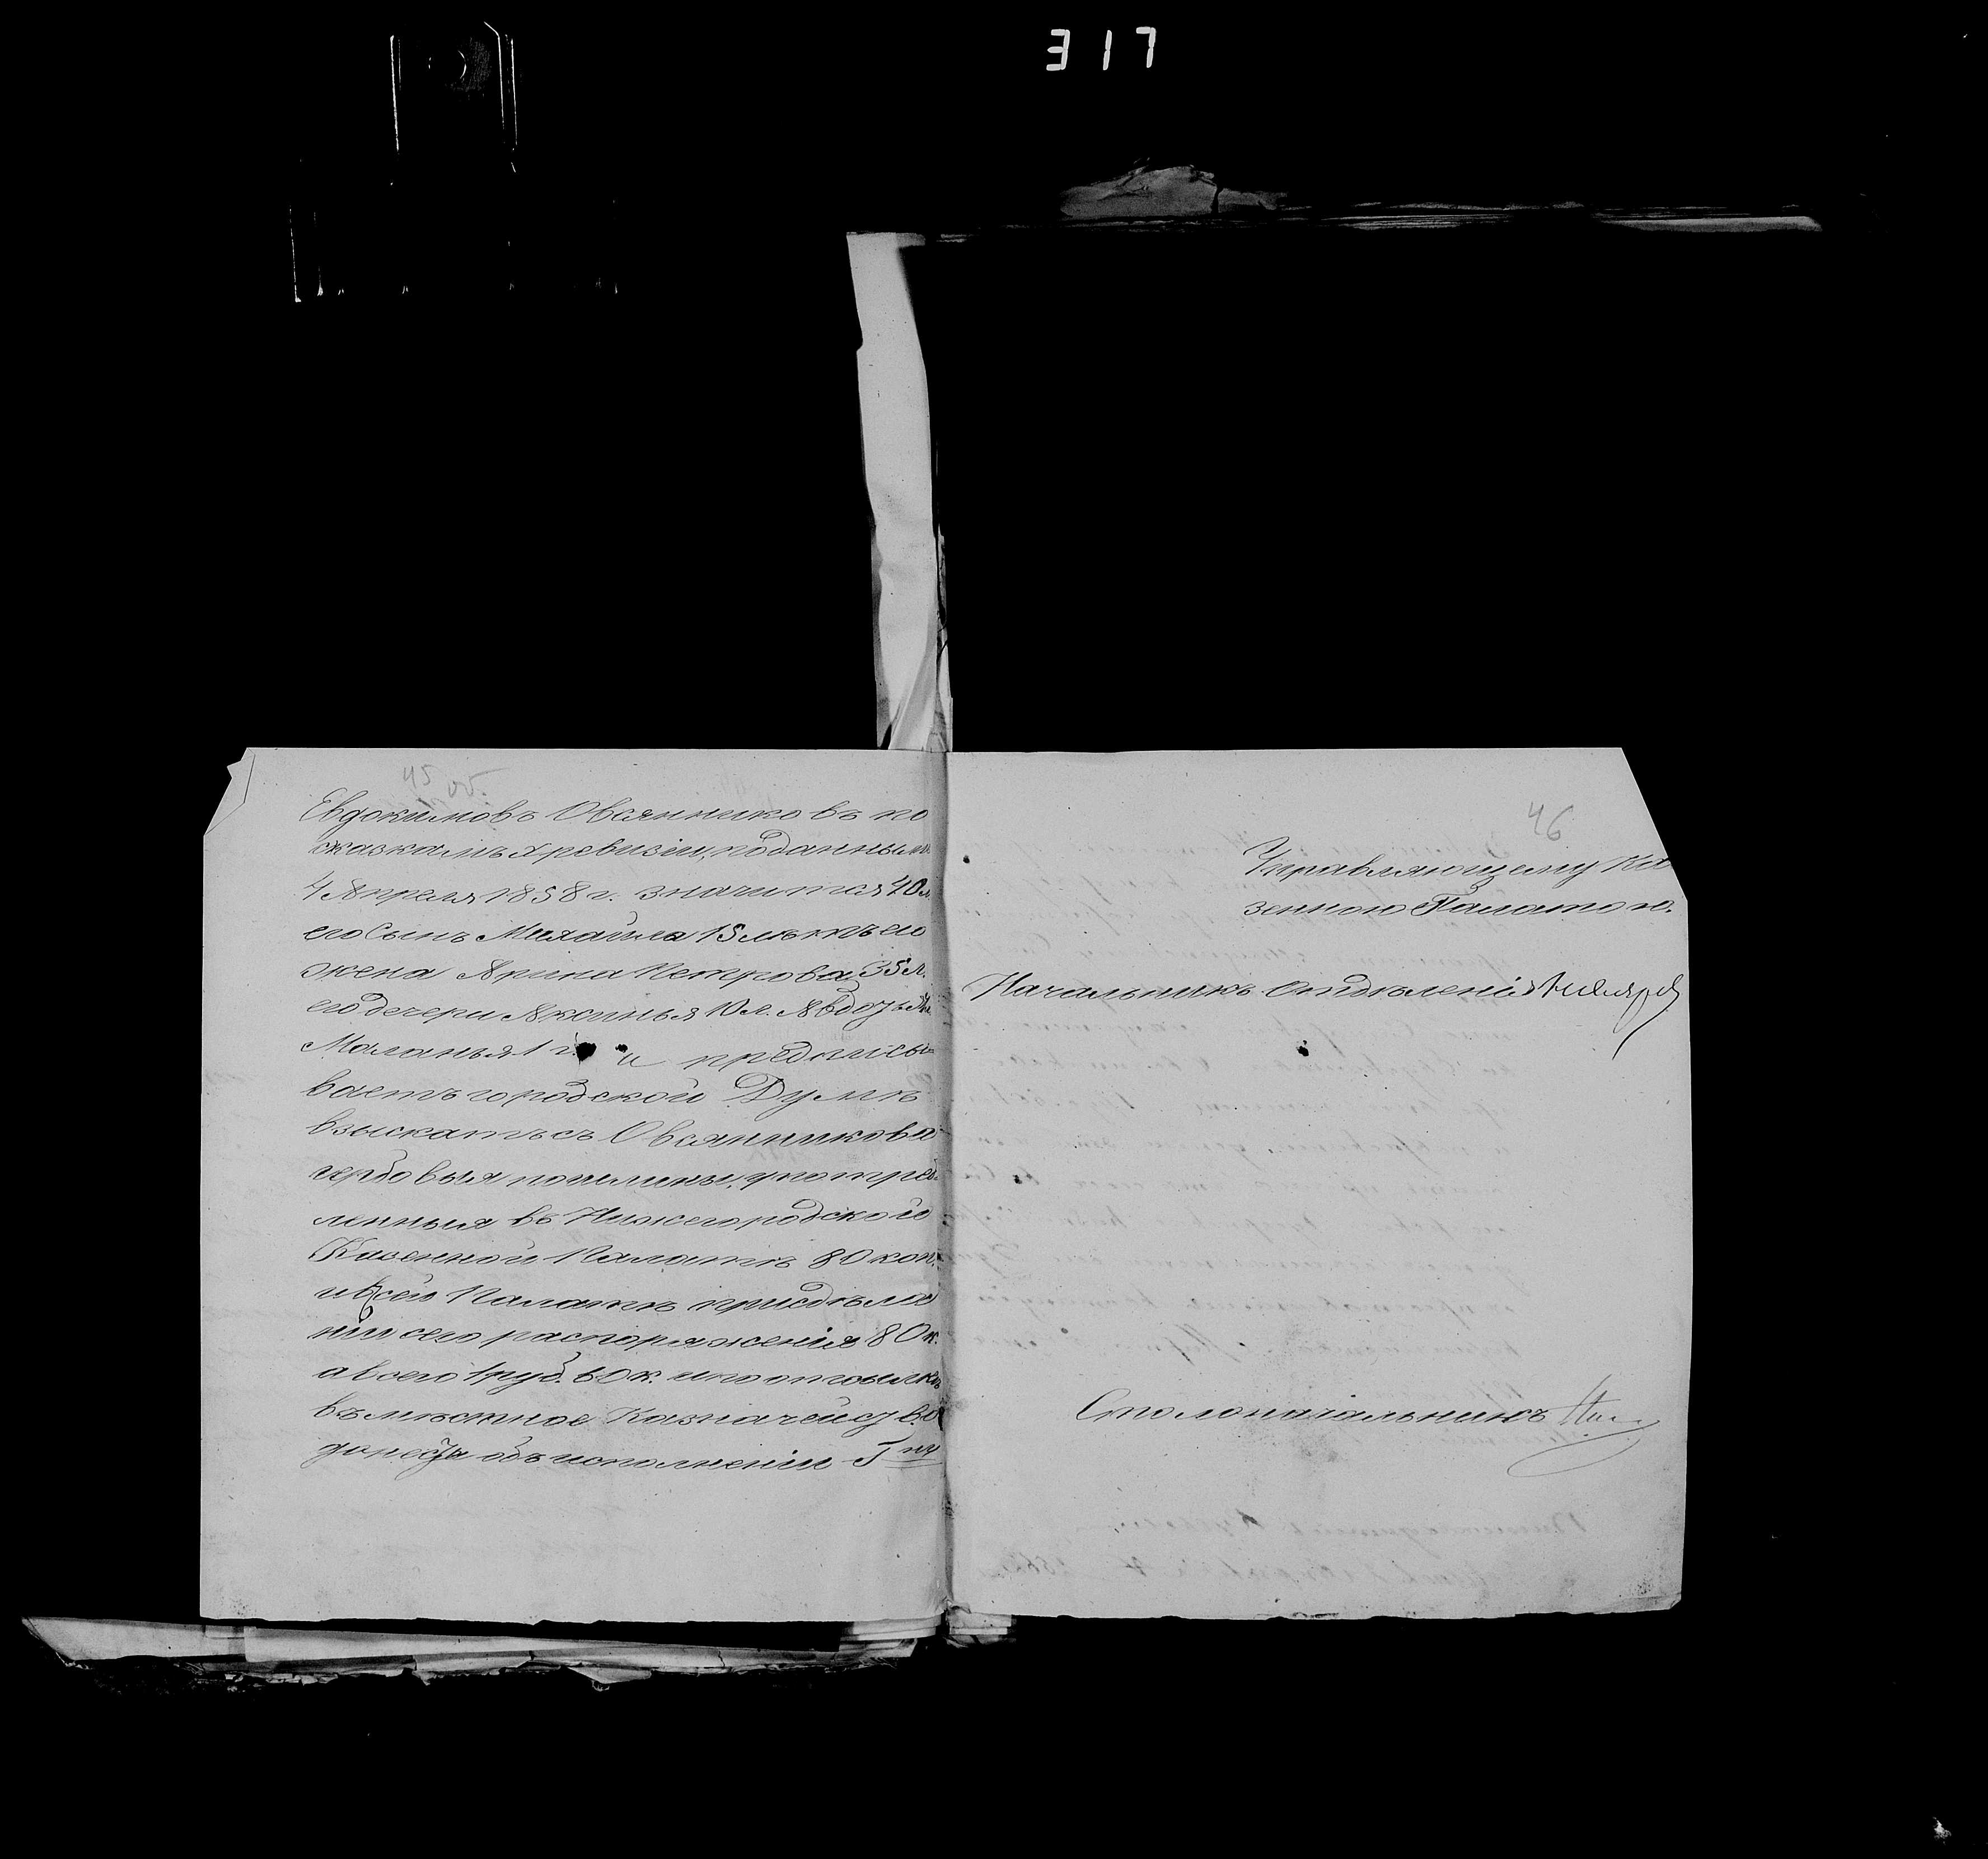 317
45 об.
Евдокимовъ Овсянниковъ по
сказкамъ X ревизіи, поданнымъ
4 Апреля 1858 г. значится 40 л.
его сынъ Михайла 15 лѣтъ его
жена Арина Петрова 35 л.
его дечери Аксинья 10 л. Авдотья
Маланья 1 г. и предписы-
ваетъ городской Думѣ
взыскать съ Овсянникова
гербовыя пошлины, употреб-
ленныя въ Нижегородской
Казенной Палатѣ 80 коп.
и въ сей Палатѣ при сдѣла
ніи сего распоряженія 80 к.
а всего 1 руб. 60 к. и по отсылкѣ
въ мѣстное Казначейство
донести объ исполненіи Г. ну
46
Управляющему Ка
зенною Палатою.
Начальникъ Отдѣленія
Столоначальникъ